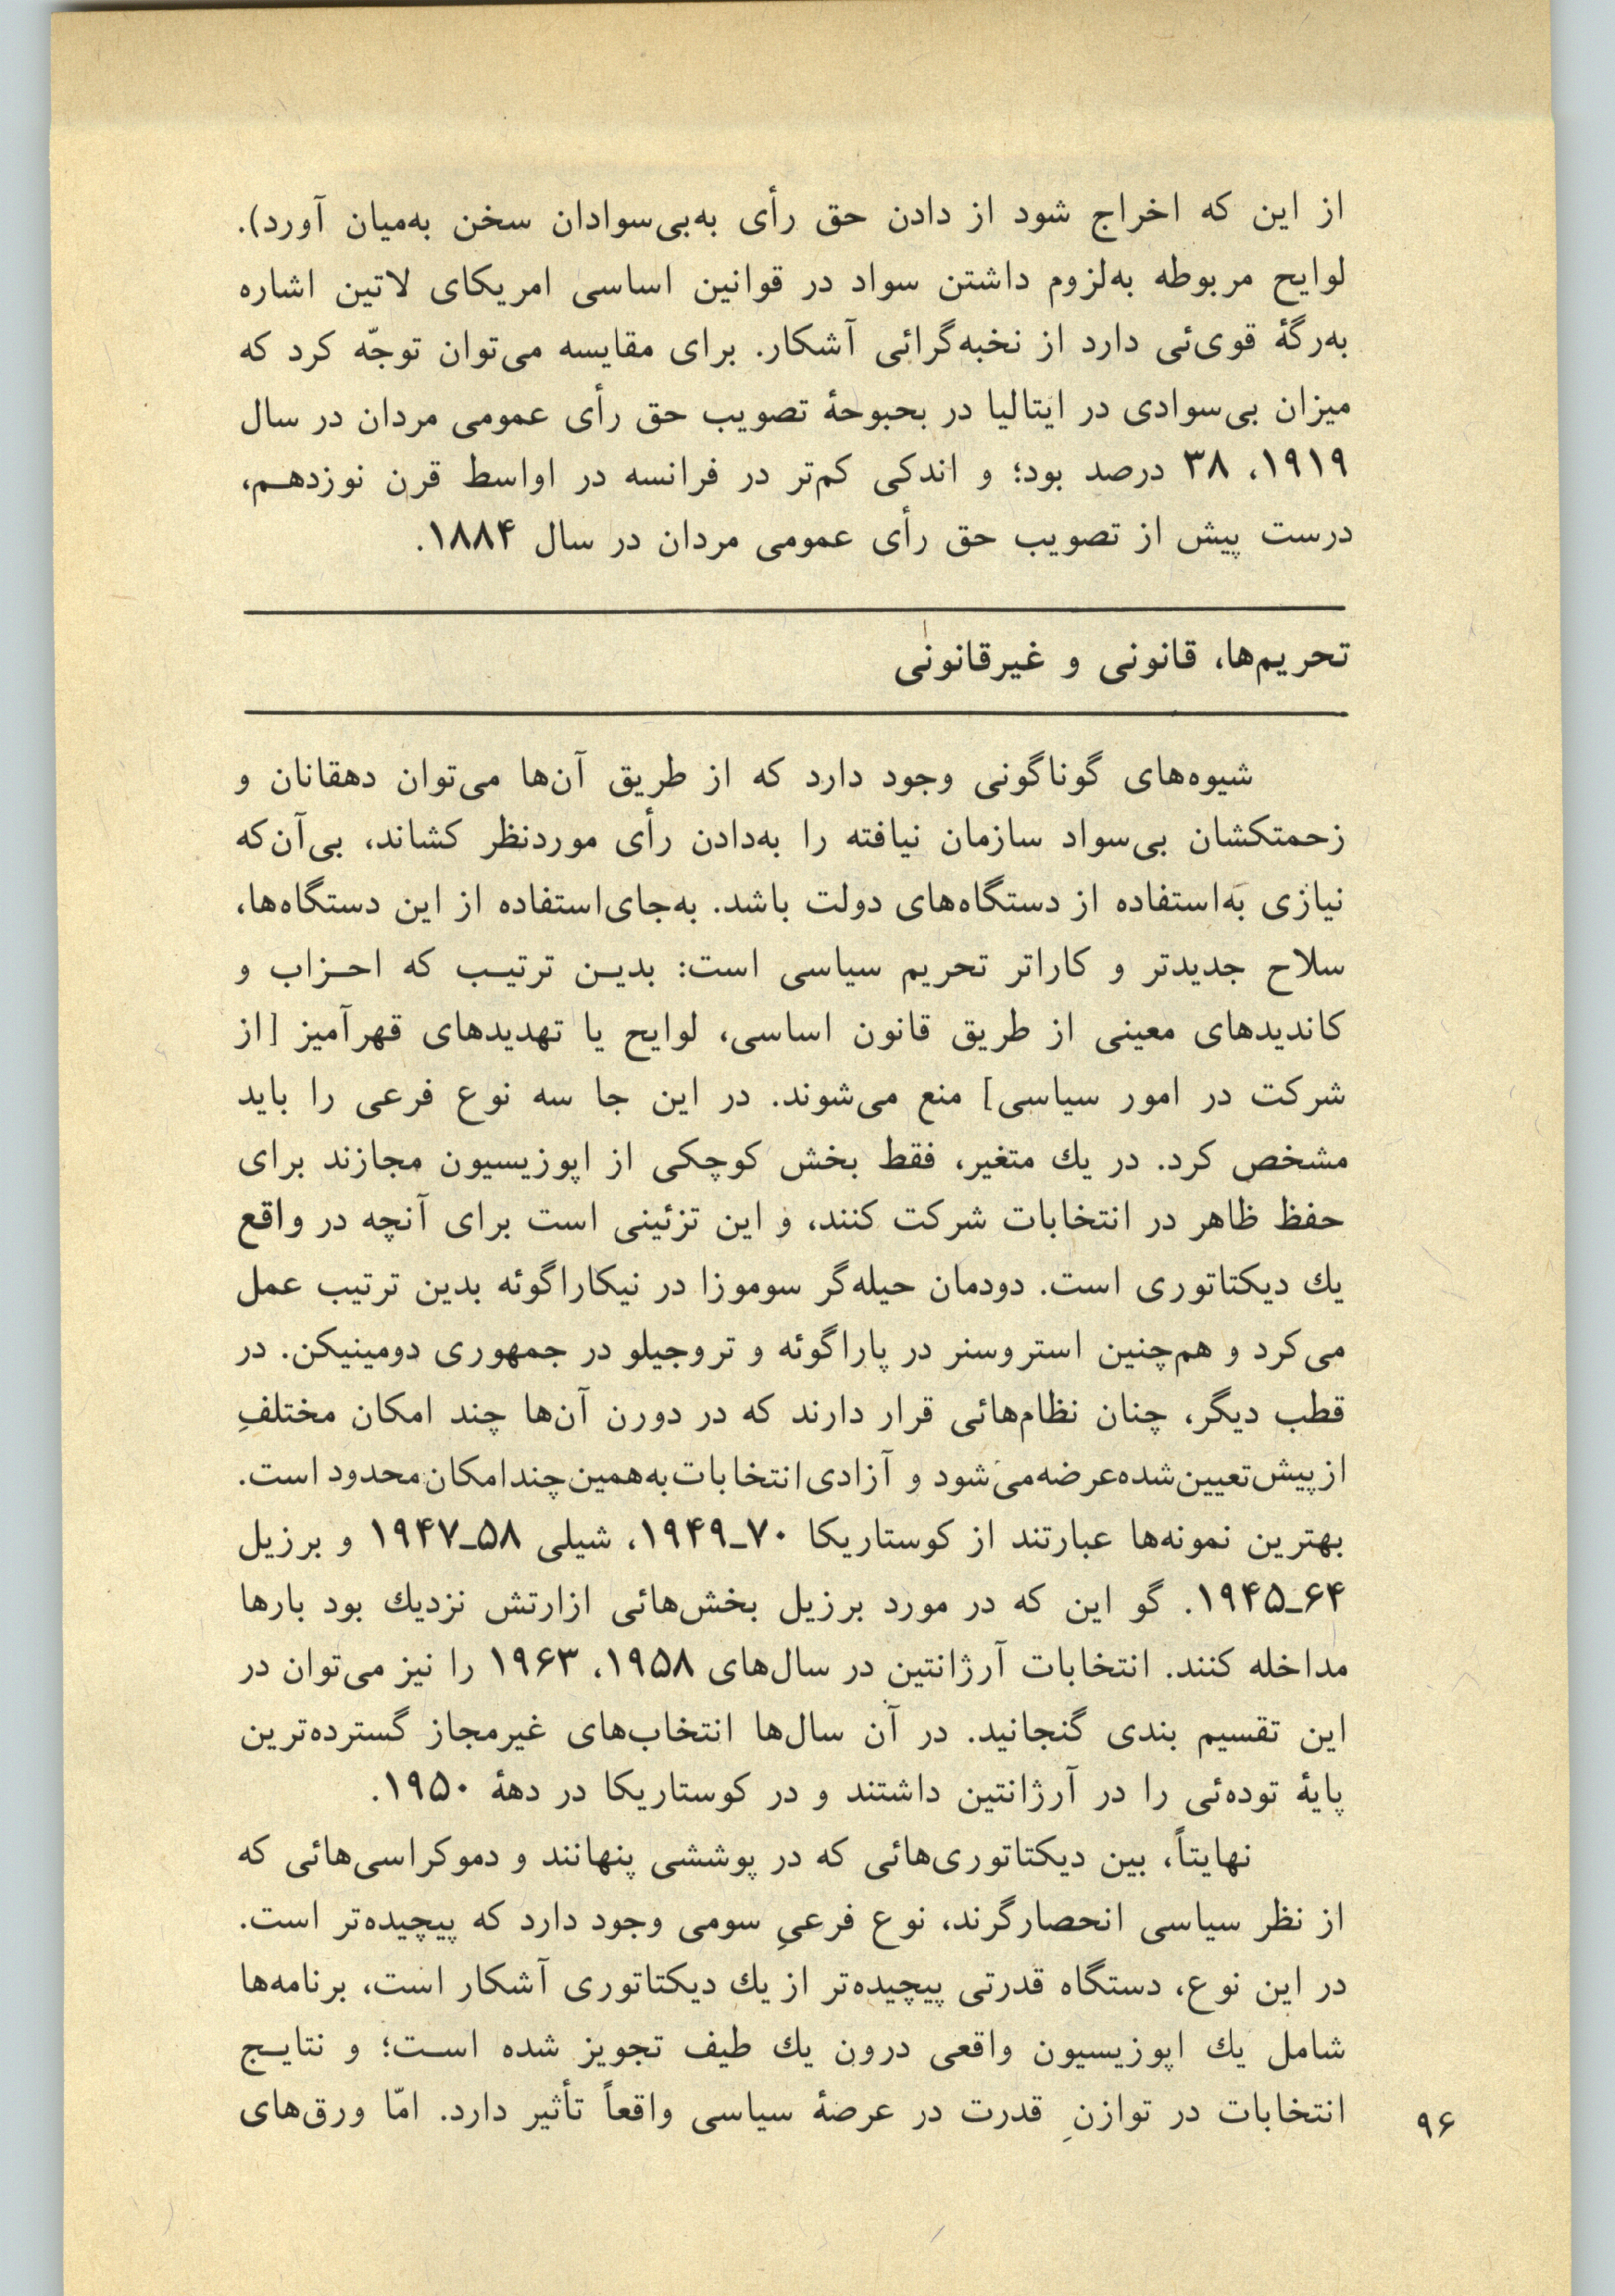 از این که اخراج شود از دادن حق رأی به‌بی‌سوادان سخن به‌میان آورد).
لوایح مربوطه به‌لزوم داشتن سواد در قوانین اساسی امریکای لاتین اشاره
به‌رگهٔ قوی‌ئی دارد از نخبه‌گرائی آشکار. برای مقایسه می‌توان توجّه کرد که
میزان بی‌سوادی در ایتالیا در بحبوحهٔ تصویب حق رأی عمومی مردان در سال
۱۹۱۹، ۳۸ درصد بود؛ و اندکی کم‌تر در فرانسه در اواسط قرن نوزدهـم،
درست پیش از تصویب حق رأی عمومی مردان در سال ۱۸۸۴.
تحریم‌ها، قانونی و غیرقانونی
شیوه‌های گوناگونی وجود دارد که از طریق آن‌ها می‌توان دهقانان و
زحمتکشان بی‌سواد سازمان نیافته را به‌دادن رأی موردنظر کشاند، بی‌آن‌که
نیازی به‌استفاده از دستگاه‌های دولت باشد. به‌جای‌استفاده از این دستگاه‌ها،
سلاح جدیدتر و کاراتر تحریم سیاسی است: بدیـن ترتیـب که احـزاب و
کاندیدهای معینی از طریق قانون اساسی، لوایح یا تهدیدهای قهرآمیز [از
شرکت در امور سیاسی] منع می‌شوند. در این جا سه نوع فرعی را باید
مشخص کرد. در یك متغیر، فقط بخش کوچکی از اپوزیسیون مجازند برای
حفظ ظاهر در انتخابات شرکت کنند، و این تزئینی است برای آنچه در واقع
یك دیکتاتوری است. دودمان حیله‌گر سوموزا در نیکاراگوئه بدین ترتیب عمل
می‌کرد و هم‌چنین استروسنر در پاراگوئه و تروجیلو در جمهوری دومینیکن. در
قطب دیگر، چنان نظام‌هائی قرار دارند که در دورن آن‌ها چند امکان مختلفِ
ازپیش‌تعیین‌شده‌عرضه‌می‌شود و آزادی‌انتخابات‌به‌همین‌چندامکان‌محدود است.
بهترین نمونه‌ها عبارتند از کوستاریکا ۷۰ـ۱۹۴۹، شیلی ۵۸ـ۱۹۴۷ و برزیل
۶۴ـ۱۹۴۵. گو این که در مورد برزیل بخش‌هائی ازارتش نزدیك بود بارها
مداخله کنند. انتخابات آرژانتین در سال‌های ۱۹۵۸، ۱۹۶۳ را نیز می‌توان در
این تقسیم بندی گنجانید. در آن سال‌ها انتخاب‌های غیرمجاز گسترده‌ترین
پایهٔ توده‌ئی را در آرژانتین داشتند و در کوستاریکا در دههٔ ۱۹۵۰.
نهایتاً، بین دیکتاتوری‌هائی که در پوششی پنهانند و دموکراسی‌هائی که
از نظر سیاسی انحصارگرند، نوع فرعیِ سومی وجود دارد که پیچیده‌تر است.
در این نوع، دستگاه قدرتی پیچیده‌تر از یك دیکتاتوری آشکار است، برنامه‌ها
شامل یك اپوزیسیون واقعی درون یك طیف تجویز شده اسـت؛ و نتایـج
انتخابات در توازنِ قدرت در عرصهٔ سیاسی واقعاً تأثیر دارد. امّا ورق‌های
۹۶